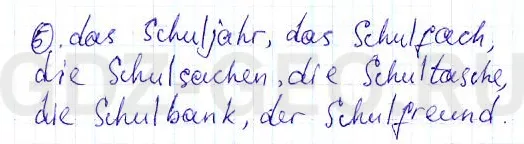 5). das Schuljahr, das Schulfach,
die Schulsachen, die Schultasche,
die Schulbank, der Schulfreund.